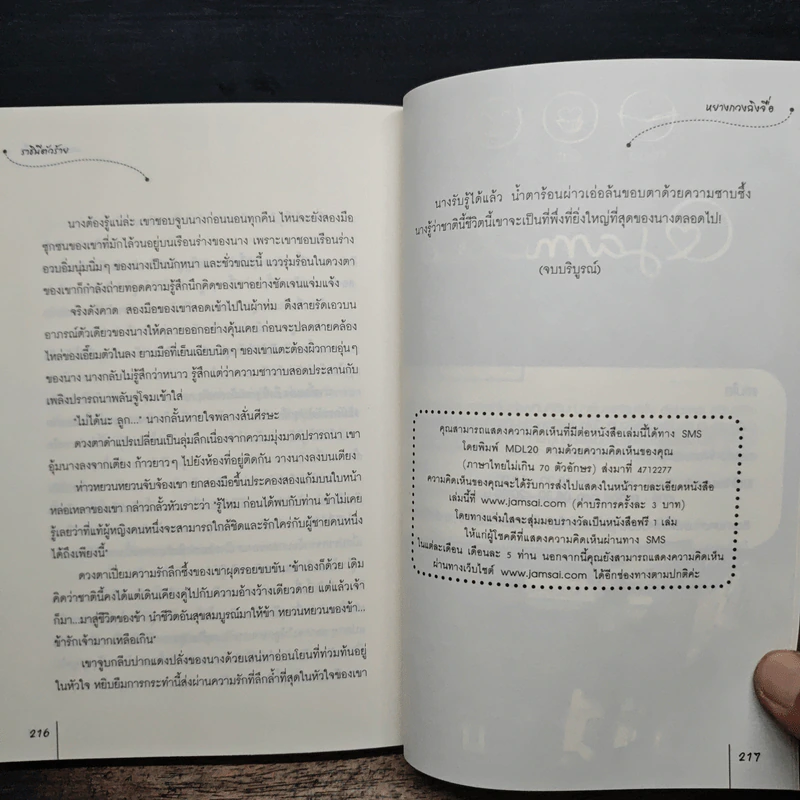 ราชินีตัวร้าย
นางต้องรู้แน่ล่ะ เขาชอบจูบนางก่อนนอนทุกคืน ไหนจะยังสองมือ
ซุกซนของเขาที่มักไล้วนอยู่บนเรือนร่างของนาง เพราะเขาชอบเรือนร่าง
อวบอิ่มนุ่มนิ่มๆ ของนางเป็นนักหนา และชั่วขณะนี้ แววรุ่มร้อนในดวงตา
ของเขาก็กำลังถ่ายทอดความรู้สึกนึกคิดของเขาอย่างชัดเจนแจ่มแจ้ง
จริงดังคาด สองมือของเขาสอดเข้าไปในผ้าห่ม ดึงสายรัดเอวบน
อาภรณ์ตัวเดียวของนางให้คลายออกอย่างคุ้นเคย ก่อนจะปลดสายคล้อง
ไหล่ของเอี๊ยมตัวในลง ยามมือที่เย็นเฉียบนิดๆ ของเขาแตะต้องผิวกายอุ่นๆ
ของนาง นางกลับไม่รู้สึกว่าหนาว รู้สึกแต่ว่าความซาวาบสอดประสานกับ
เพลิงปรารถนาพลันจู่โจมเข้าใส่
"ไม่ได้นะ ลูก..." นางกลั้นหายใจพลางสั่นศีรษะ
ดวงตาดำแปรเปลี่ยนเป็นลุ่มลึกเนื่องจากความมุ่งมาดปรารถนา เขา
อุ้มนางลงจากเตียง ก้าวยาวๆ ไปยังห้องที่อยู่ติดกัน วางนางลงบนเตียง
ห่าวหยวนหยวนจับจ้องเขา ยกสองมือขึ้นประคองสองแก้มบนใบหน้า
หล่อเหลาของเขา กล่าวกลั้วหัวเราะว่า "รู้ไหม ก่อนได้พบกับท่าน ข้าไม่เคย
รู้เลยว่าที่แท้ผู้หญิงคนหนึ่งจะสามารถใกล้ชิดและรักใคร่กับผู้ชายคนหนึ่ง
ได้ถึงเพียงนี้"
ดวงตาเปี่ยมความรักลึกซึ้งของเขาผุดรอยขบขัน "ข้าเองก็ด้วย เดิม
คิดว่าชาตินี้คงได้แต่เดินเคียงคู่ไปกับความอ้างว้างเดียวดาย แต่แล้วเจ้า
ก็มา...มาสู่ชีวิตของข้า นำชีวิตอันสุขสมบูรณ์มาให้ข้า หยวนหยวนของข้า...
ข้ารักเจ้ามากเหลือเกิน"
เขาจูบกลีบปากแดงปลั่งของนางด้วยเสน่หาอ่อนโยนที่ท่วมท้นอยู่
ในหัวใจ หยิบยืมการกระทำนี้ส่งผ่านความรักที่ลึกล้ำที่สุดในหัวใจของเขา
216
หยางกวงฉิงจื่อ
นางรับรู้ได้แล้ว น้ำตาร้อนผ่าวเอ่อล้นขอบตาด้วยความซาบซึ้ง
นางรู้ว่าชาตินี้ชีวิตนี้เขาจะเป็นที่พึ่งที่ยิ่งใหญ่ที่สุดของนางตลอดไป!
(จบบริบูรณ์)
คุณสามารถแสดงความคิดเห็นที่มีต่อหนังสือเล่มนี้ได้ทาง SMS
โดยพิมพ์ MDL20 ตามด้วยความคิดเห็นของคุณ
(ภาษาไทยไม่เกิน 70 ตัวอักษร) ส่งมาที่ 4712277
ความคิดเห็นของคุณจะได้รับการส่งไปแสดงในหน้ารายละเอียดหนังสือ
เล่มนี้ที่ www.jamsai.com (ค่าบริการครั้งละ 3 บาท)
โดยทางแจ่มใสจะสุ่มมอบรางวัลเป็นหนังสือฟรี 1 เล่ม
ให้แก่ผู้โชคดีที่แสดงความคิดเห็นผ่านทาง SMS
ในแต่ละเดือน เดือนละ 5 ท่าน นอกจากนี้คุณยังสามารถแสดงความคิดเห็น
ผ่านทางเว็บไซต์ www.jamsai.com ได้อีกช่องทางตามปกติค่ะ
217